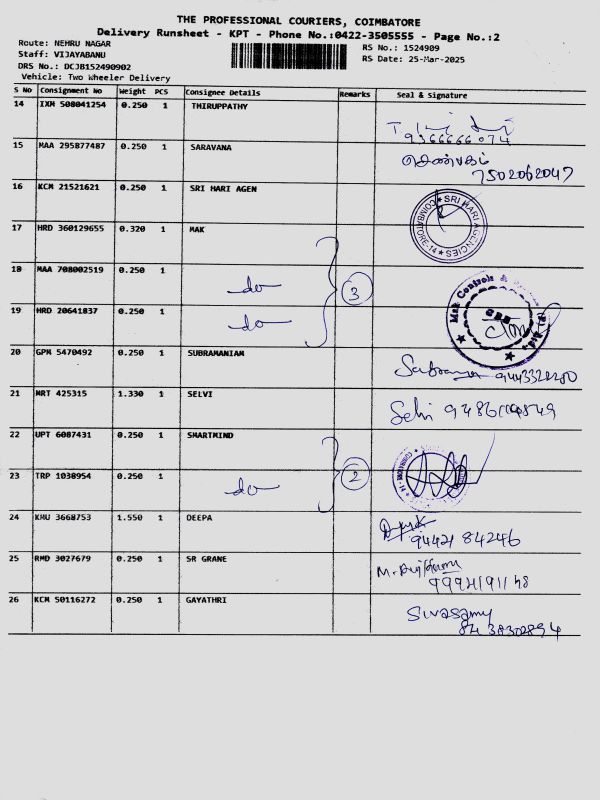 THE PROFESSIONAL COURIERS, COIMBATORE
Delivery Runsheet - KPT - Phone No.:0422-3505555 - Page No.:2
Route: NEHRU NAGAR
Staff: VIJAYABANU
DRS No.: DCJB152490902
Vehicle: Two Wheeler Delivery
RS No.: 1524909
RS Date: 25-Mar-2025
S No Consignment No Weight PCS Consignee Details Remarks Seal & Signature
14 IXM 508041254 0.250 1 THIRUPPATHY
9366666074
15 MAA 295877487 0.250 1 SARAVANA
செண்பகம்
7502062047
16 KCM 21521621 0.250 1 SRI HARI AGEN
SRI HARI AGENCIES COIMBATORE-14
17 HRD 360129655 0.320 1 MAK
18 MAA 708002519 0.250 1 do 3
19 HRD 20641837 0.250 1 do
Mak Controls &
20 GPM 5470492 0.250 1 SUBRAMANIAM
21 MRT 425315 1.330 1 SELVI
Selvi
22 UPT 6087431 0.250 1 SMARTMIND
23 TRP 1038954 0.250 1 do 2
24 KMU 3668753 1.550 1 DEEPA
94421 84246
25 RMD 3027679 0.250 1 SR GRANE
26 KCM 50116272 0.250 1 GAYATHRI
Sivasamy